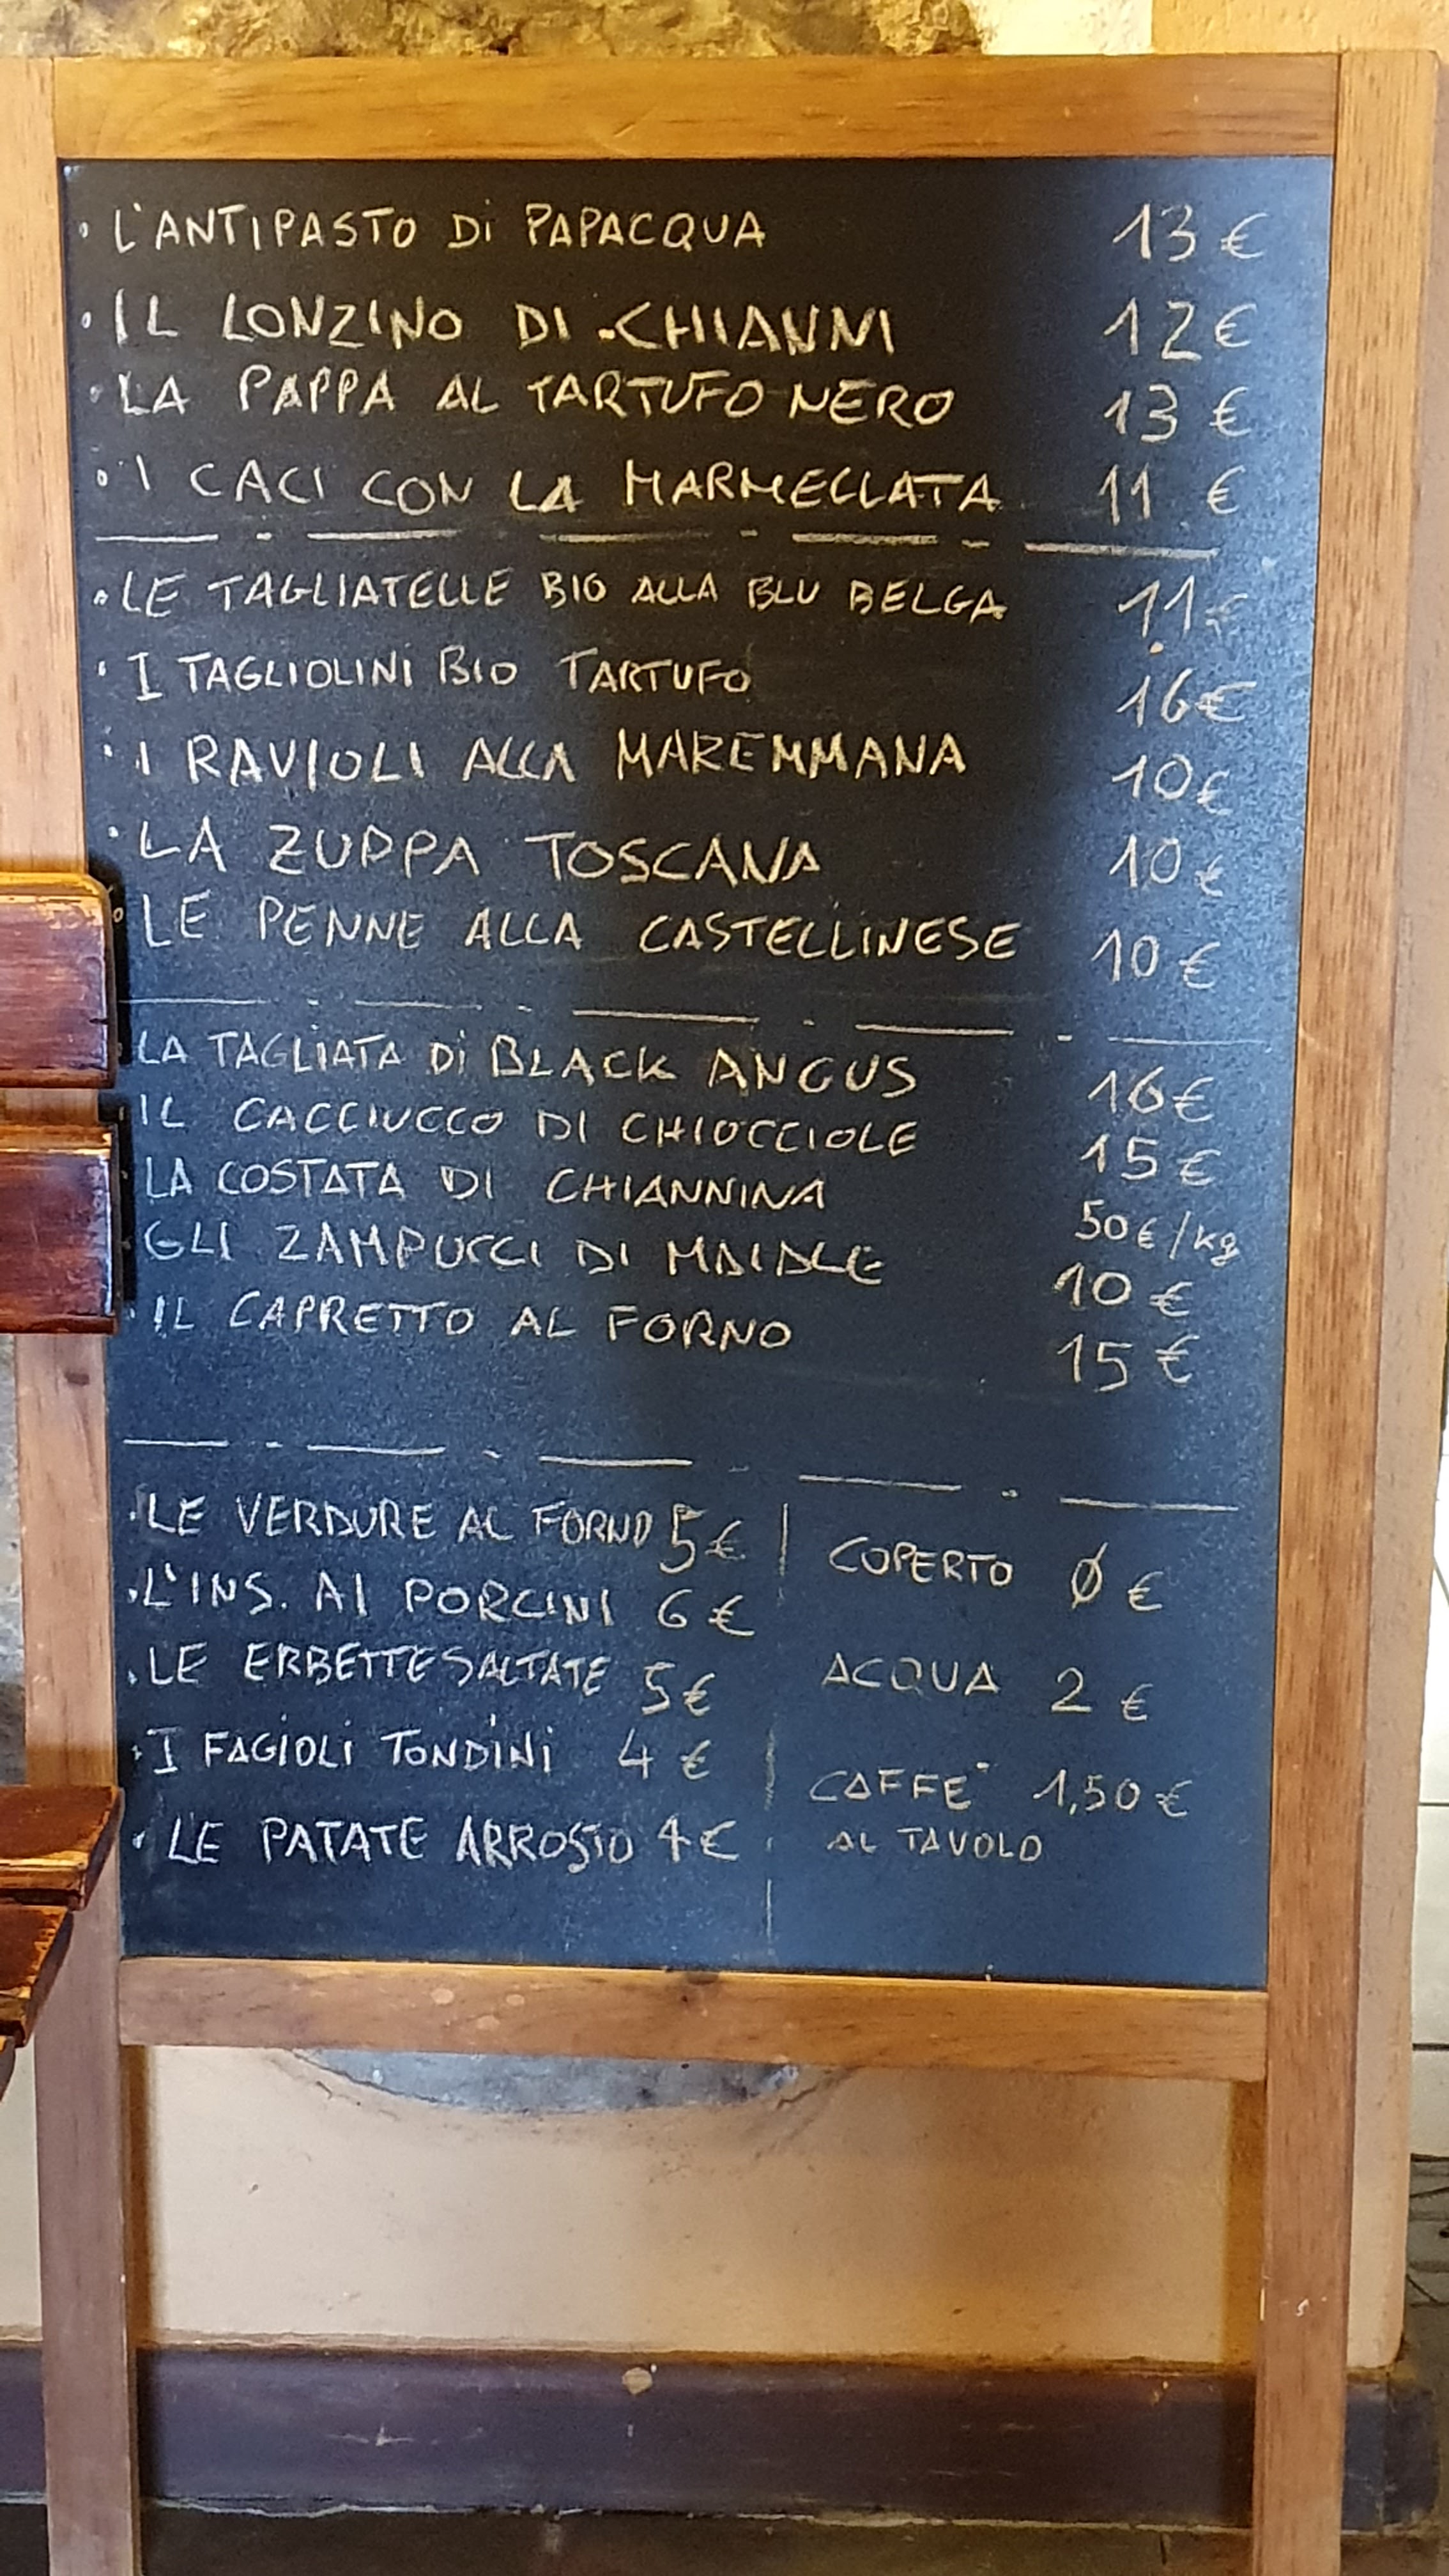 L'ANTIPASTO Di PAPACQUA 13 €
IL LONZINO DI CHIANNI 12 €
LA PAPPA AL TARTUFO NERO 13 €
I CACI CON LA MARMELLATA 11 €
LE TAGLIATELLE BIO ALLA BLU BELGA 11 €
I TAGLIOLINI BIO TARTUFO 16 €
I RAVIOLI ALLA MAREMMANA 10 €
LA ZUPPA TOSCANA 10 €
LE PENNE ALLA CASTELLINESE 10 €
LA TAGLIATA Di BLACK ANGUS 16 €
IL CACCIUCCO DI CHIOCCIOLE 15 €
LA COSTATA DI CHIANNINA 50 €/kg
GLI ZAMPUCCI DI MAIALE 10 €
IL CAPRETTO AL FORNO 15 €
LE VERDURE AL FORNO 5 €
L'INS. AI PORCINI 6 €
LE ERBETTE SALTATE 5 €
I FAGIOLI TONDINI 4 €
LE PATATE ARROSTO 4 €
COPERTO 0 €
ACQUA 2 €
CAFFE' 1,50 €
AL TAVOLO